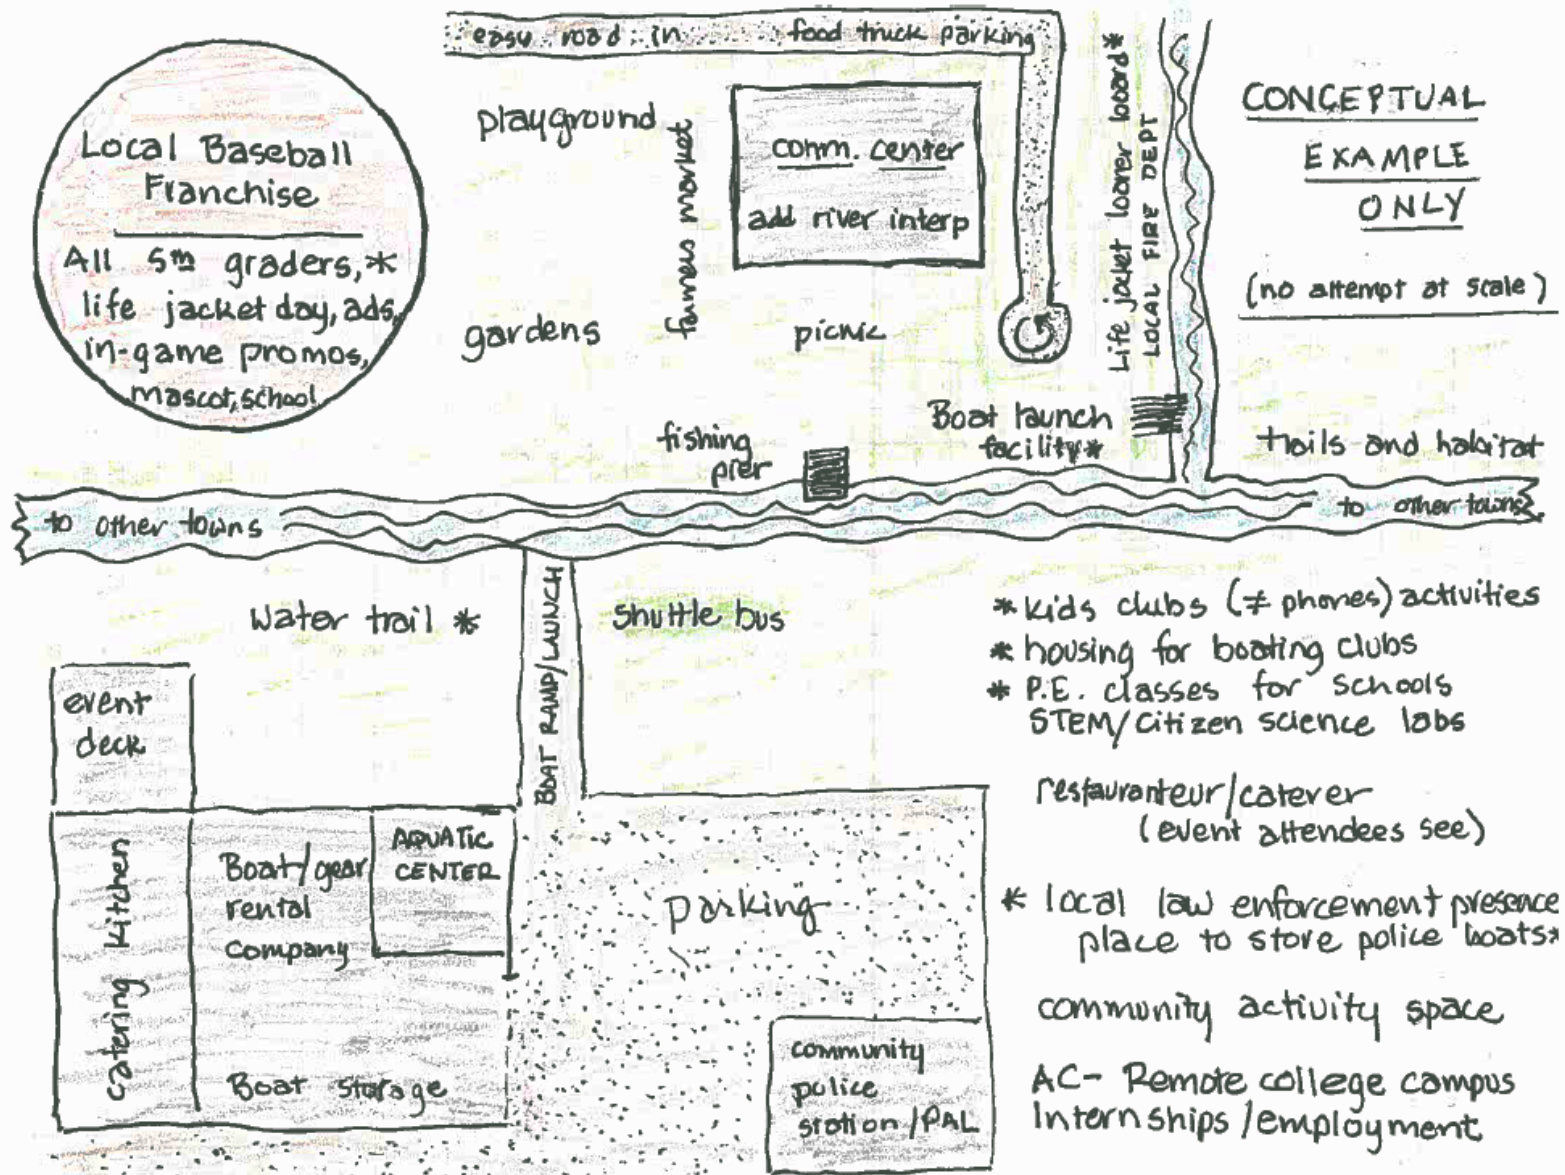 easy road in food truck parking
Local Baseball
Franchise
All 5th graders,*
life jacket day, ads,
in-game promos,
mascot, school
playground
farmers market
gardens
comm. center
add river interp
picnic
Life jacket loaner board*
LOCAL FIRE DEPT
CONCEPTUAL
EXAMPLE
ONLY
(no attempt at scale)
fishing
pier
Boat launch
facility*
trails and habitat
to other towns
to other towns
Water trail *
BOAT RAMP/LAUNCH
Shuttle bus
event
deck
catering kitchen
Boat/gear
rental
company
AQUATIC
CENTER
Boat storage
parking
community
police
station/PAL
* kids clubs (≠ phones) activities
* housing for boating clubs
* P.E. classes for schools
STEM/citizen science labs
restauranteur/caterer
(event attendees see)
* local law enforcement presence
place to store police boats*
community activity space
AC- Remote college campus
Internships/employment